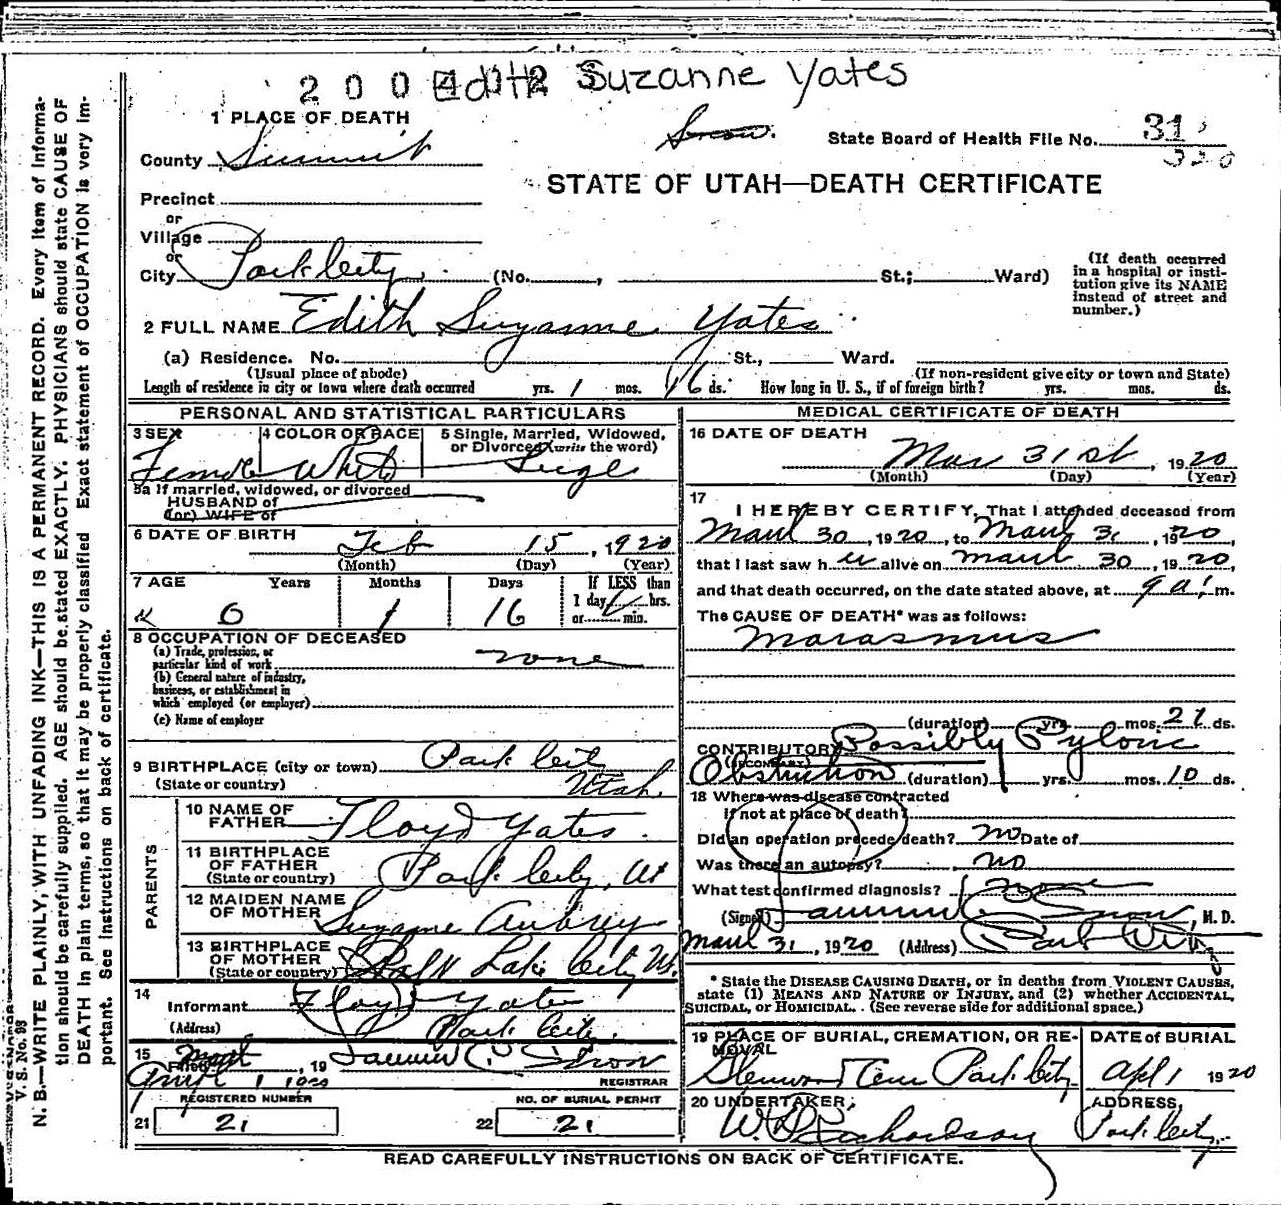 2004402 Edith Suzanne Yates
1 PLACE OF DEATH
Snow.
State Board of Health File No. 31
320
County Summit
STATE OF UTAH—DEATH CERTIFICATE
Precinct
or
Village
or
City Park City (No. , St.; Ward)
(If death occurred in a hospital or insti-
tution give its NAME instead of street and number.)
2 FULL NAME Edith Suzanne Yates
(a) Residence. No. St., Ward.
(Usual place of abode) (If non-resident give city or town and State)
Length of residence in city or town where death occurred yrs. 1 mos. 16 ds. How long in U. S., if of foreign birth? yrs. mos. ds.
PERSONAL AND STATISTICAL PARTICULARS
3 SEX 4 COLOR OR RACE 5 Single, Married, Widowed, or Divorced (write the word)
Female White Single
5a If married, widowed, or divorced
HUSBAND of
(or) WIFE of
6 DATE OF BIRTH Feb 15, 1920
(Month) (Day) (Year)
7 AGE Years Months Days If LESS than
1 day, hrs.
or min.
0 1 16
8 OCCUPATION OF DECEASED
(a) Trade, profession, or
particular kind of work none
(b) General nature of industry,
business, or establishment in
which employed (or employer)
(c) Name of employer
9 BIRTHPLACE (city or town) Park City
(State or country) Utah.
PARENTS
10 NAME OF FATHER Floyd Yates.
11 BIRTHPLACE OF FATHER (State or country) Park City, Ut
12 MAIDEN NAME OF MOTHER Suzanne Aubrey
13 BIRTHPLACE OF MOTHER (State or country) Salt Lake City Ut.
14 Informant Floyd Yates
(Address) Park City.
15 Filed April 1 1920, 19 Snow
REGISTRAR
REGISTERED NUMBER NO. OF BURIAL PERMIT
21 21 22 21
MEDICAL CERTIFICATE OF DEATH
16 DATE OF DEATH
Mar 31st, 1920
(Month) (Day) (Year)
17
I HEREBY CERTIFY, That I attended deceased from
March 30, 1920, to March 31, 1920,
that I last saw her alive on March 30, 1920,
and that death occurred, on the date stated above, at 9 a. m.
The CAUSE OF DEATH* was as follows:
Marasmus
(duration) yrs. mos. 21 ds.
CONTRIBUTORY Possibly Pyloric
(SECONDARY)
Obstruction (duration) yrs. mos. 10 ds.
18 Where was disease contracted
if not at place of death?
Did an operation precede death? no Date of
Was there an autopsy? no
What test confirmed diagnosis? none
(Signed) Snow, M. D.
March 31, 1920 (Address) Park City
* State the DISEASE CAUSING DEATH, or in deaths from VIOLENT CAUSES,
state (1) MEANS AND NATURE OF INJURY, and (2) whether ACCIDENTAL,
SUICIDAL, or HOMICIDAL. (See reverse side for additional space.)
19 PLACE OF BURIAL, CREMATION, OR RE-
MOVAL
DATE of BURIAL
Glenwood Cem Park City Apl 1 1920
20 UNDERTAKER, ADDRESS,
W. Richardson Park City
READ CAREFULLY INSTRUCTIONS ON BACK OF CERTIFICATE.
V. S. No. 98
N. B.—WRITE PLAINLY, WITH UNFADING INK—THIS IS A PERMANENT RECORD. Every item of informa-
tion should be carefully supplied. AGE should be stated EXACTLY. PHYSICIANS should state CAUSE OF
DEATH in plain terms, so that it may be properly classified Exact statement of OCCUPATION is very im-
portant. See instructions on back of certificate.